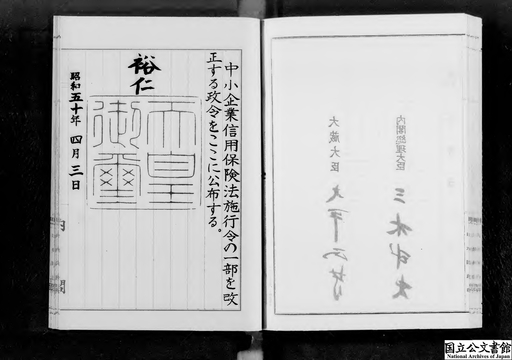 中小企業信用保険法施行令の一部を改
正する政令をここに公布する。
裕仁
天皇
御璽
昭和五十年四月三日
内閣総理大臣
三木武夫
大蔵大臣
大平正芳
国立公文書館
National Archives of Japan